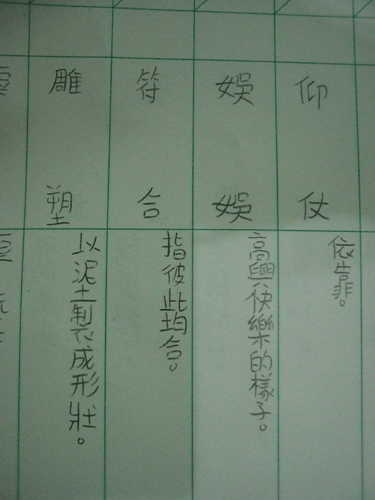 仰仗
依靠。
娛娛
高興快樂的樣子。
符合
指彼此均合。
雕塑
以泥土製成形狀。